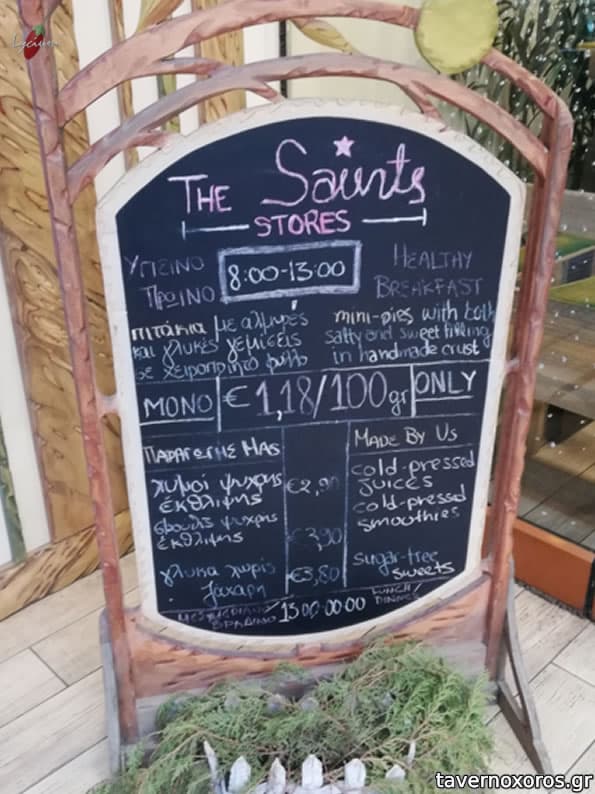 Lycium
THE Saints
STORES
ΥΓΙΕΙΝΟ
ΠΡΩΙΝΟ
8:00-13:00
HEALTHY
BREAKFAST
πιτάκια με αλμυρές
και γλυκές γεμίσεις
σε χειροποίητο φύλλο
mini-pies, with both
salty and sweet filling
in handmade crust
ΜΟΝΟ
€1,18/100gr
ONLY
ΠΑΡΑΓΩΓΗΣ ΜΑΣ
MADE BY US
χυμοί ψυχρής
έκθλιψης
€2,90
cold-pressed
juices
σμουθις ψυχρης
έκθλιψης
€3,90
cold-pressed
smoothies
γλυκα χωρίς
ζαχαρη
€3,80
sugar-free
sweets
ΜΕΣΗΜΕΡΙΑΝΟ
ΒΡΑΔΙΝΟ
13:00-00:00
LUNCH/
DINNER
tavernoxoros.gr